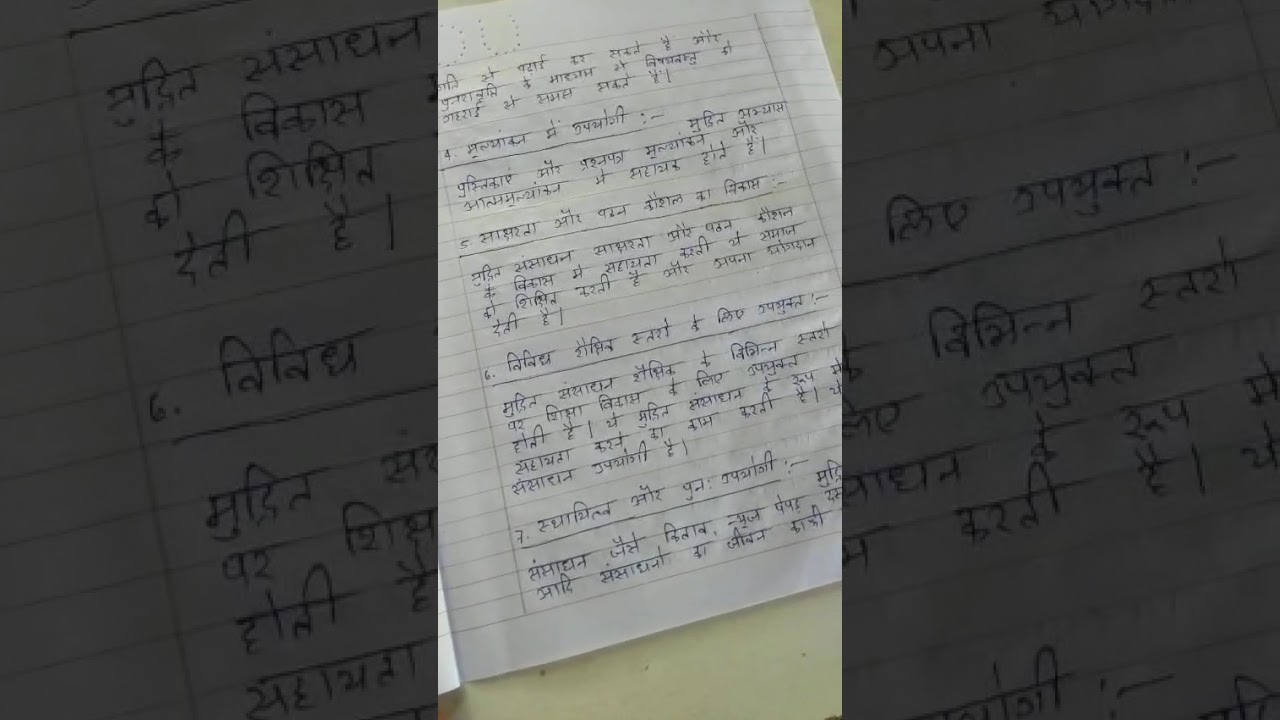 गति से पढाई कर सकते है और
पुनरावृति के माध्यम से विषयवस्तु को
गहराई से समझ सकते है।
4. मूल्यांकन में उपयोगी :-
मुद्रित अभ्यास
पुस्तिकाएं और प्रश्नपत्र मूल्यांकन और
आत्ममूल्यांकन में सहायक होते है।
5 साक्षरता और पठन कौशल का विकास :-
मुद्रित संसाधन साक्षरता और पठन कौशल
के विकास में सहायता करती ये समाज
को शिक्षित करती है और अपना योगदान
देती है।
6. विविध शैक्षिक स्तरो के लिए उपयुक्त :-
मुद्रित संसाधन शैक्षिक के विभिन्न स्तरो
पर शिक्षा विकास के लिए उपयुक्त
होती है। ये मुद्रित संसाधन के रूप मे
सहायता करने का काम करती है। ये
संसाधन उपयोगी है।
7. स्थायित्व और पुनः उपयोगी :-
संसाधन जैसे किताब, न्यूज पेपर
आदि संसाधनो का जीवन काफी